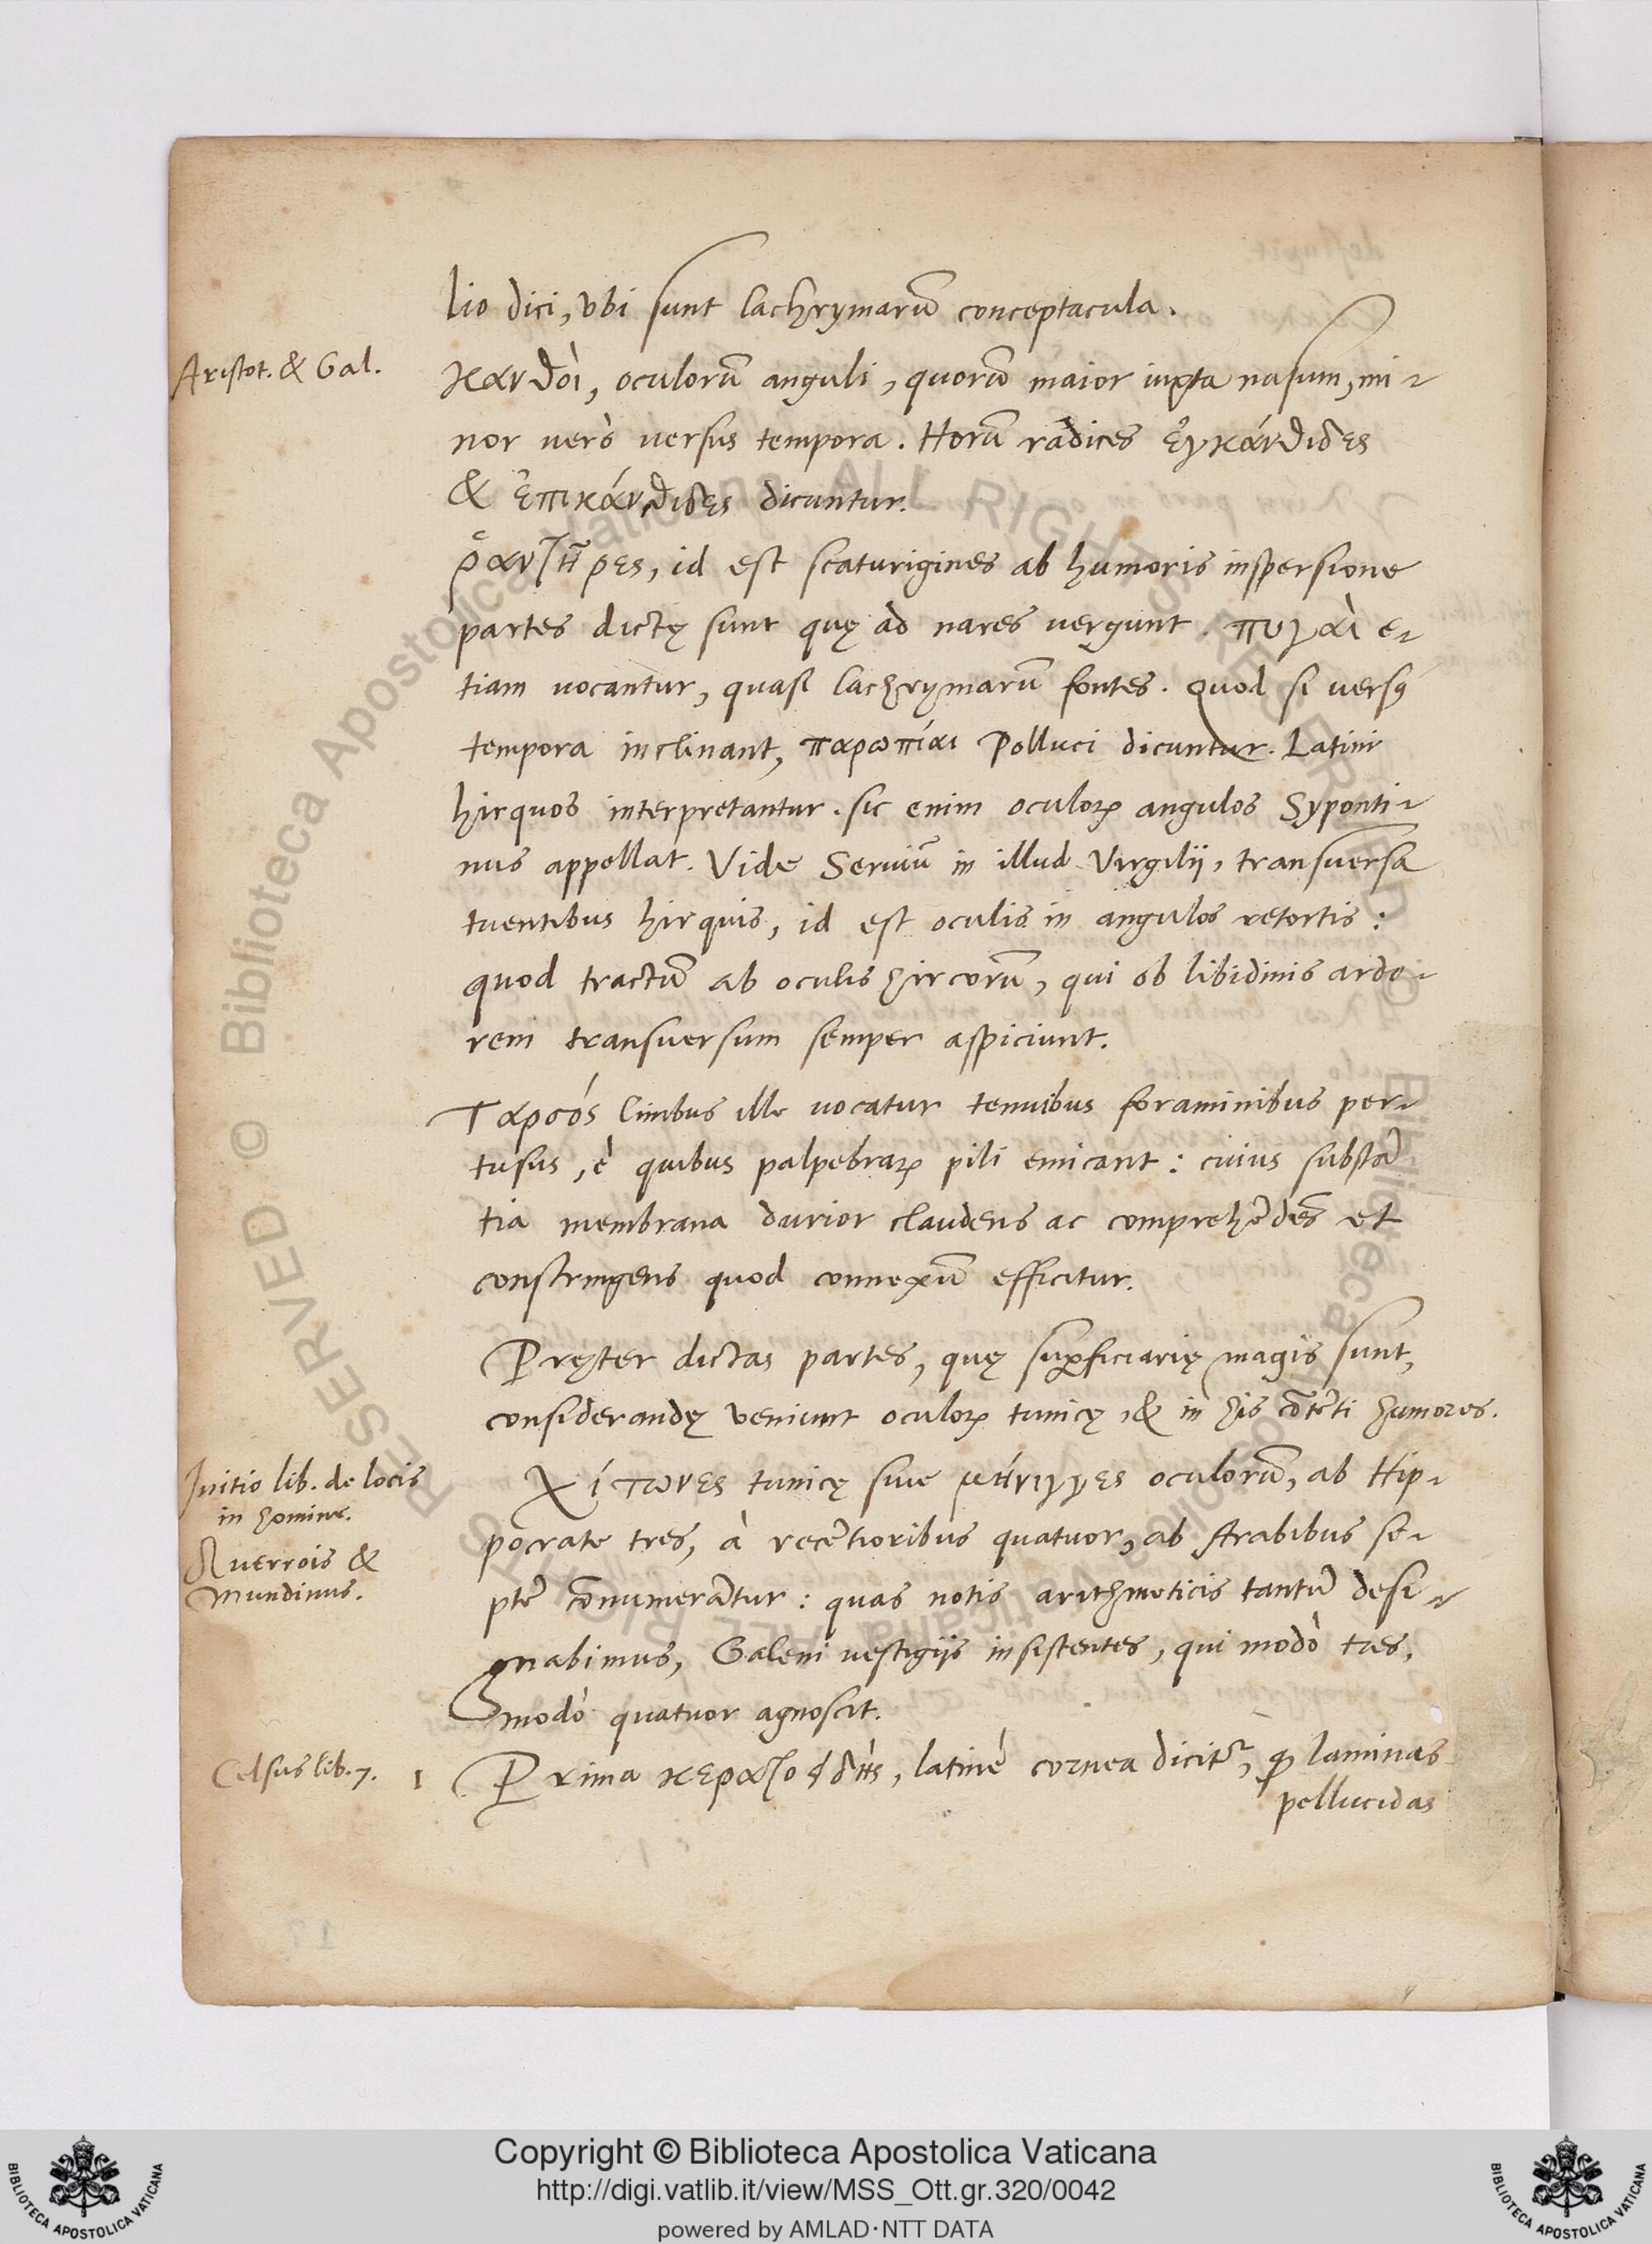 lio dici, vbi sunt lachrymarũ conceptacula.
Aristot. & Gal.
κανθοὶ, oculorũ anguli, quorũ maior iuxta nasum, mi-
nor verò versus tempora. Horũ radices ἐγκάνθιδες
& ἐπικάνθιδες dicuntur.
ῥαντῆρες, id est scaturigines ab humoris inspersione
partes dictę sunt quę ad nares vergunt. πυγαὶ e-
tiam uocantur, quasi lachrymarũ fontes. Quod si versꝰ
tempora inclinant, παρωπίαι Polluci dicuntur. Latini
hirquos interpretantur. sic enim oculoꝝ angulos Syponti-
nus appellat. Vide Seruiũ in illud Virgilij, transuersa
tuentibus hirquis, id est oculis in angulos retortis:
quod tractũ ab oculis hircorũ, qui ob libidinis ardo-
rem transuersum semper aspiciunt.
Ταρσός limbus ille uocatur tenuibus foraminibus per-
tusus, è quibus palpebraꝝ pili emicant: cuius substã
tia membrana durior claudens ac comprehẽdẽs et
constringens quod connexũ efficitur.
Pręter dictas partes, quę suꝑficiarię magis sunt,
considerandę veniunt oculoꝝ tunicę, & in his cõtẽti humores.
Initio lib. de locis
in homine.
Auerrois &
Mundinus.
Χίτωνες tunicę siue μήνιγγες oculorũ, ab Hip-
pocrate tres, à recẽtioribus quatuor, ab Arabibus se-
ptẽ cõnumerãtur: quas notis arithmeticis tantũ desi-
gnabimus, Galeni vestigijs insistentes, qui modò tres,
modò quatuor agnoscit.
Celsus lib. 7.
1 Prima κερατοειδὴς, latinè cornea dicit᷑, ꝙ laminas
pellucidas
Copyright © Biblioteca Apostolica Vaticana
http://digi.vatlib.it/view/MSS_Ott.gr.320/0042
powered by AMLAD·NTT DATA
BIBLIOTECA APOSTOLICA VATICANA
BIBLIOTECA APOSTOLICA VATICANA